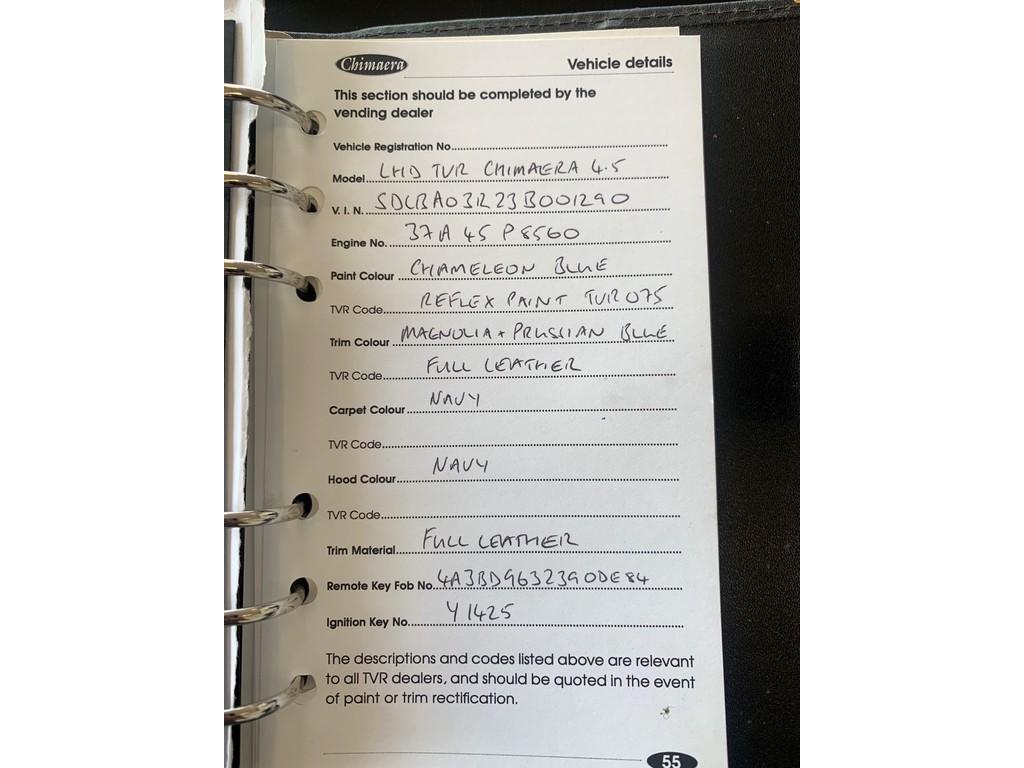 Chimaera Vehicle details
This section should be completed by the
vending dealer
Vehicle Registration No
Model LHD TVR CHIMAERA 4.5
V. I. N. SDLBA03R23B001290
Engine No. 37A 45 P8560
Paint Colour CHAMELEON BLUE
TVR Code REFLEX PAINT TVR 075
Trim Colour MAGNOLIA + PRUSSIAN BLUE
TVR Code FULL LEATHER
Carpet Colour NAVY
TVR Code
Hood Colour NAVY
TVR Code
Trim Material FULL LEATHER
Remote Key Fob No. 4A3BD9632390DE84
Ignition Key No. Y1425
The descriptions and codes listed above are relevant
to all TVR dealers, and should be quoted in the event
of paint or trim rectification.
55